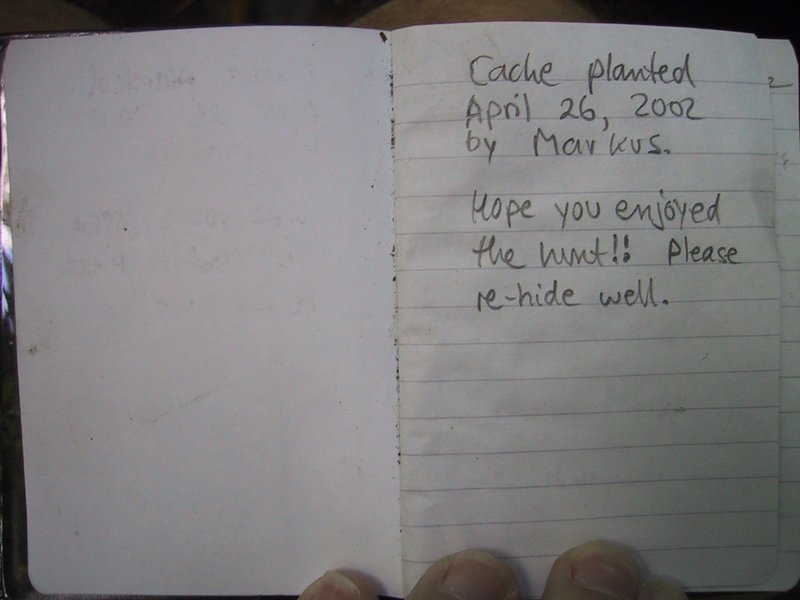 Cache planted
April 26, 2002
by Markus.
Hope you enjoyed
the hunt!! Please
re-hide well.